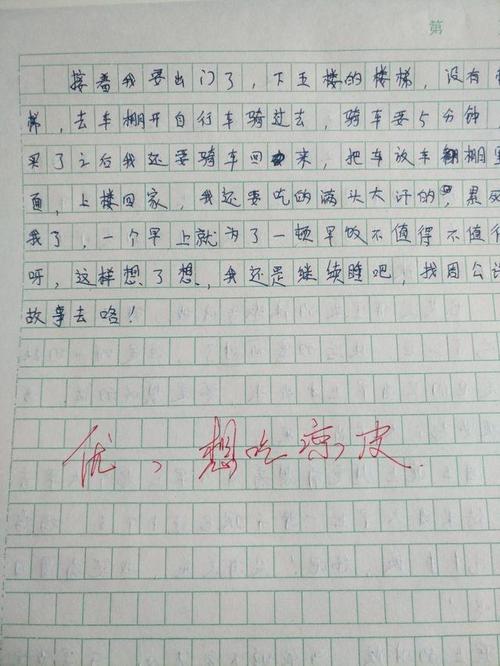 第
接着我要出门了，下五楼的楼梯，没有
梯，去车棚开自行车骑过去，骑车要5分钟
买了之后我还要骑车回来，把车放车棚里
面，上楼回家，我还要吃的满头大汗的，累死
我了，一个早上就为了一顿早饭不值得不值
呀，这样想了想，我还是继续睡吧，找周公
故事去咯！
优、想吃凉皮.